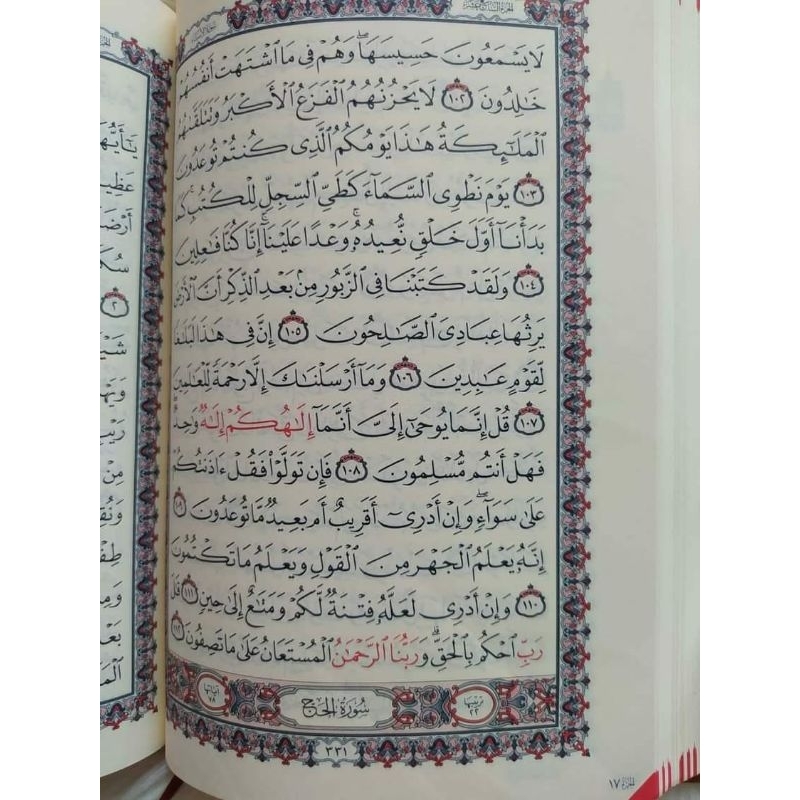 الجزء السابع عشر
لَا يَسْمَعُونَ حَسِيسَهَا ۖ وَهُمْ فِي مَا اشْتَهَتْ أَنفُسُهُمْ
خَالِدُونَ ١٠٢ لَا يَحْزُنُهُمُ الْفَزَعُ الْأَكْبَرُ وَتَتَلَقَّاهُمُ
الْمَلَٰئِكَةُ هَٰذَا يَوْمُكُمُ الَّذِي كُنتُمْ تُوعَدُونَ
١٠٣ يَوْمَ نَطْوِي السَّمَاءَ كَطَيِّ السِّجِلِّ لِلْكُتُبِ ۚ كَمَا
بَدَأْنَا أَوَّلَ خَلْقٍ نُّعِيدُهُ ۚ وَعْدًا عَلَيْنَا ۚ إِنَّا كُنَّا فَاعِلِينَ
١٠٤ وَلَقَدْ كَتَبْنَا فِي الزَّبُورِ مِن بَعْدِ الذِّكْرِ أَنَّ الْأَرْضَ
يَرِثُهَا عِبَادِيَ الصَّالِحُونَ ١٠٥ إِنَّ فِي هَٰذَا لَبَلَاغًا
لِّقَوْمٍ عَابِدِينَ ١٠٦ وَمَا أَرْسَلْنَاكَ إِلَّا رَحْمَةً لِّلْعَالَمِينَ
١٠٧ قُلْ إِنَّمَا يُوحَىٰ إِلَيَّ أَنَّمَا إِلَٰهُكُمْ إِلَٰهٌ وَاحِدٌ ۖ
فَهَلْ أَنتُم مُّسْلِمُونَ ١٠٨ فَإِن تَوَلَّوْا فَقُلْ ءَاذَنتُكُمْ
عَلَىٰ سَوَاءٍ ۖ وَإِنْ أَدْرِي أَقَرِيبٌ أَم بَعِيدٌ مَّا تُوعَدُونَ ١٠٩
إِنَّهُ يَعْلَمُ الْجَهْرَ مِنَ الْقَوْلِ وَيَعْلَمُ مَا تَكْتُمُونَ
١١٠ وَإِنْ أَدْرِي لَعَلَّهُ فِتْنَةٌ لَّكُمْ وَمَتَاعٌ إِلَىٰ حِينٍ ١١١ قَالَ
رَبِّ احْكُم بِالْحَقِّ ۗ وَرَبُّنَا الرَّحْمَٰنُ الْمُسْتَعَانُ عَلَىٰ مَا تَصِفُونَ ١١٢
ترتيبها ٢٢ سُورَةُ الحَجِّ آياتها ٧٨
٣٣١
الجزء ١٧